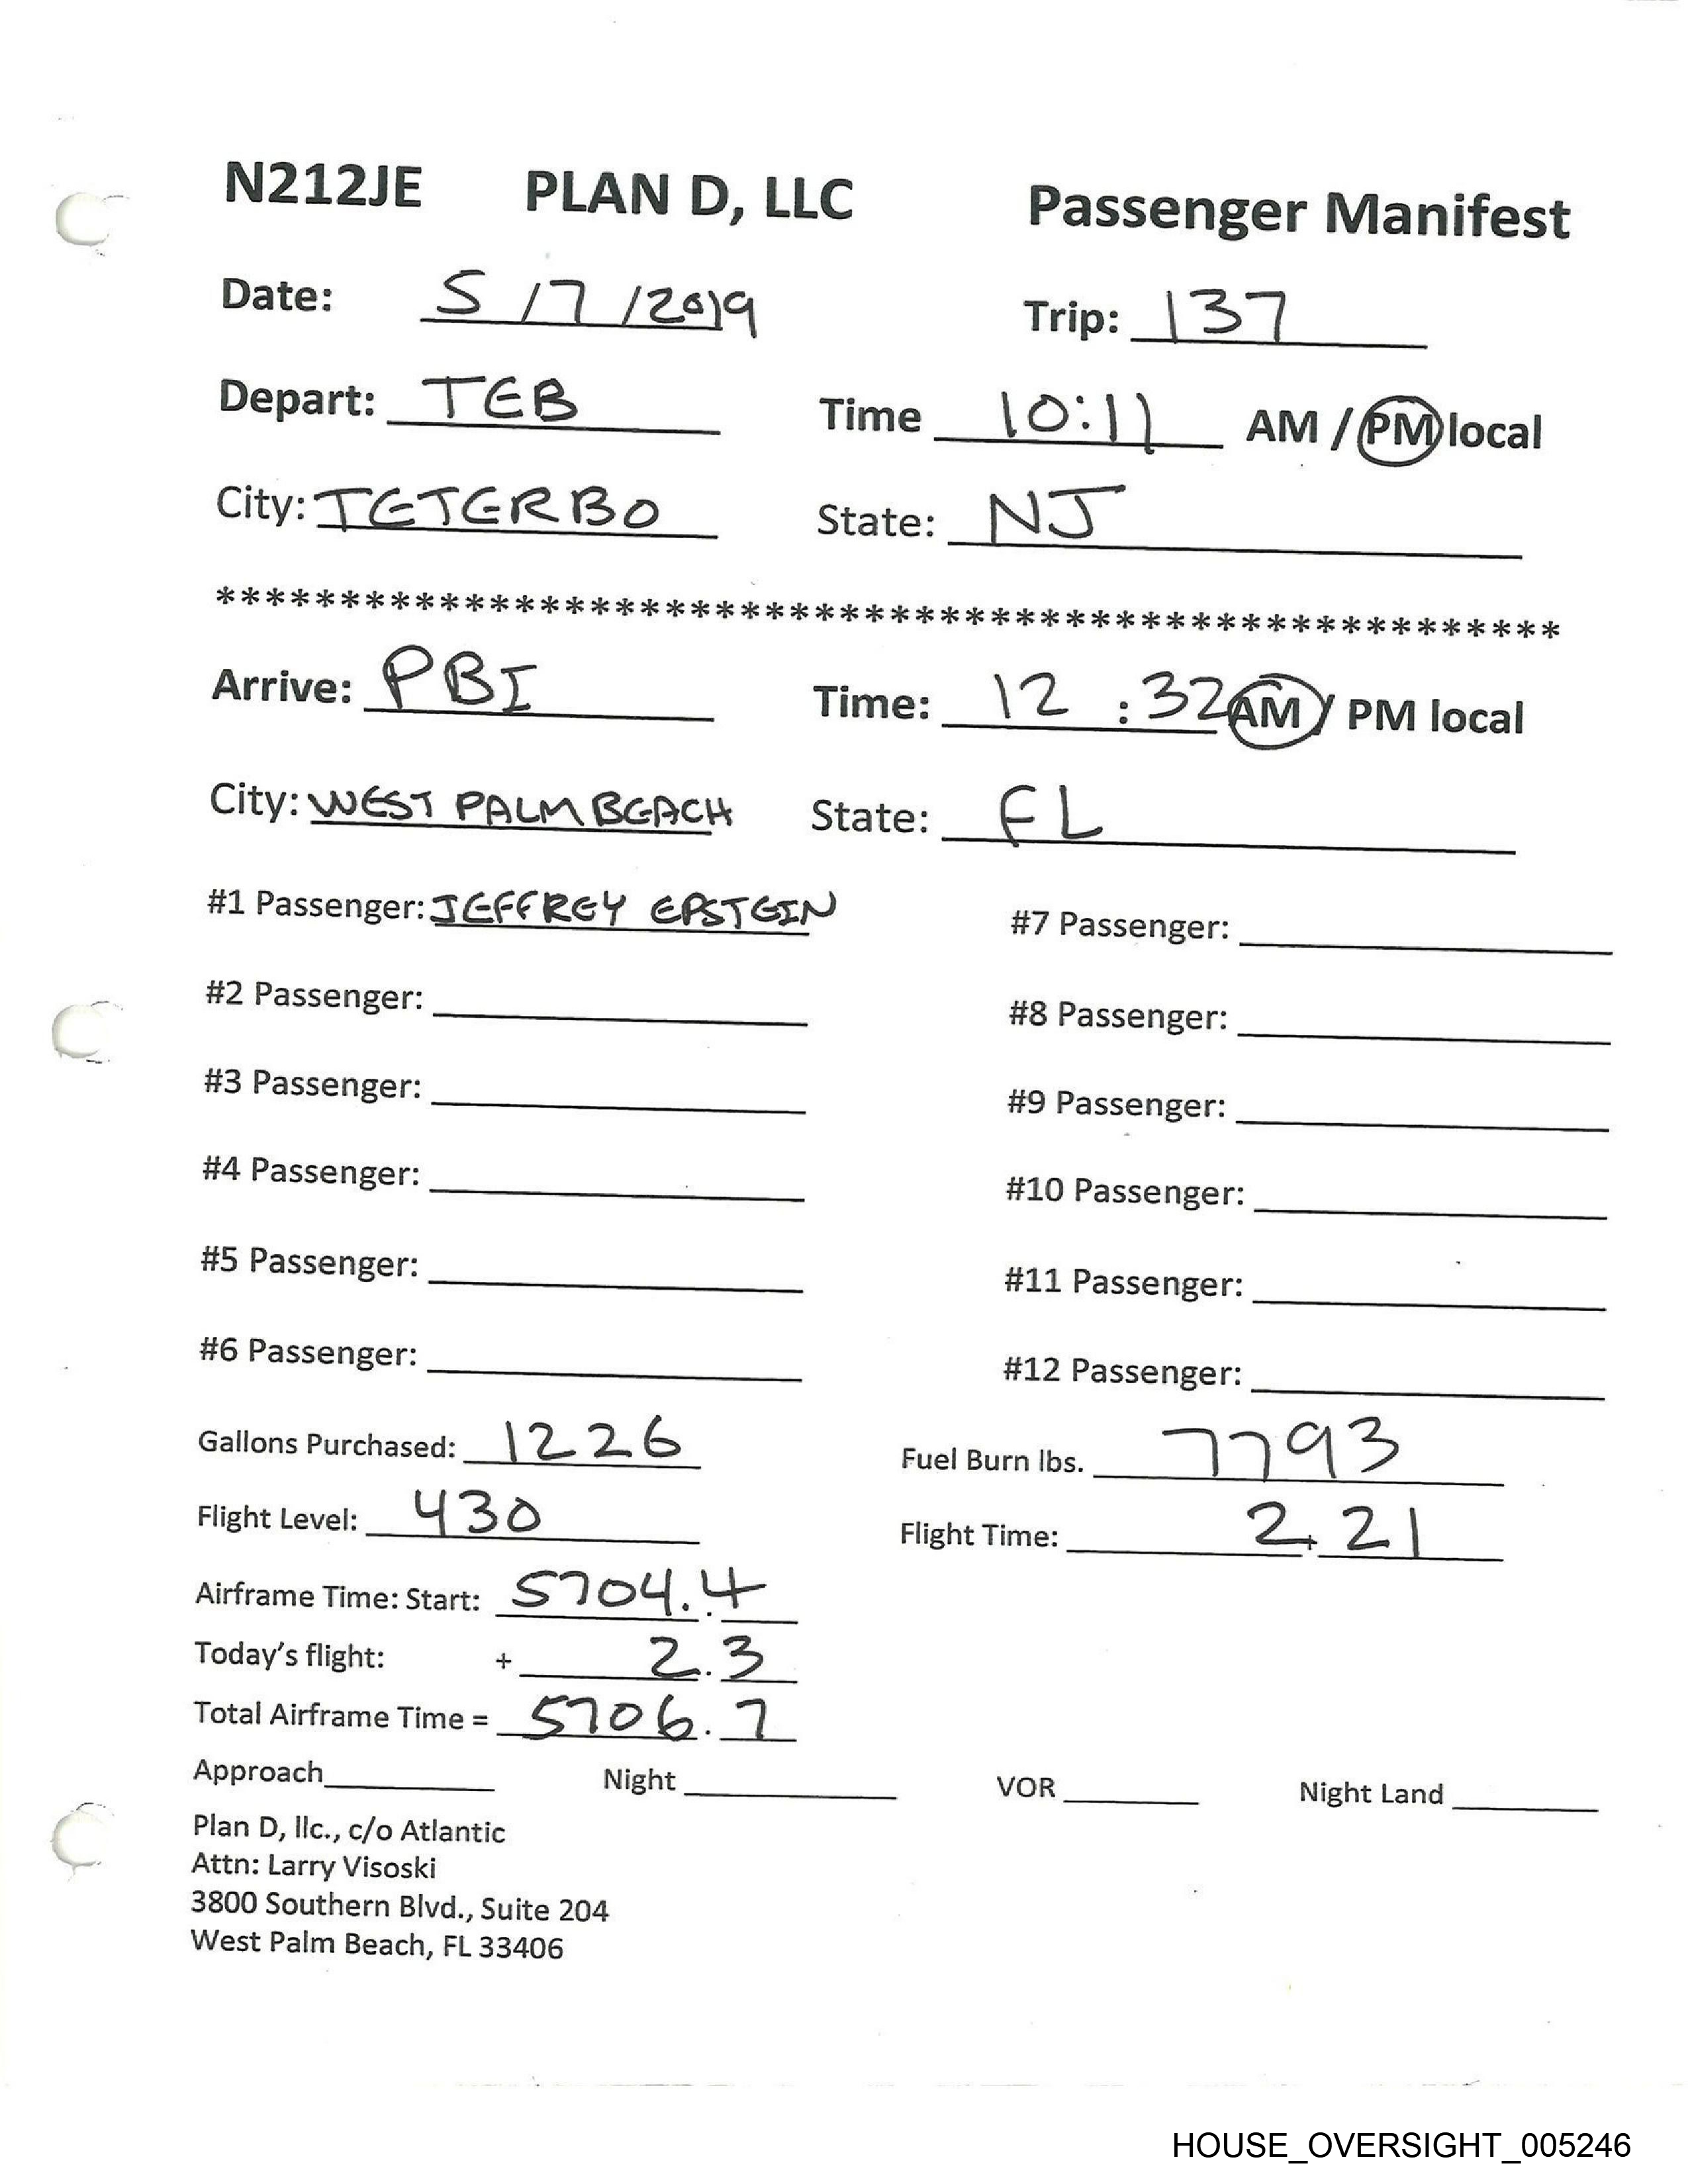 N212JE PLAN D, LLC Passenger Manifest
Date: 5/7/2019 Trip: 137
Depart: TEB Time 10:11 AM / PM local
City: TETERBO State: NJ
******************************************************
Arrive: PBI Time: 12:32 AM / PM local
City: WEST PALM BEACH State: FL
#1 Passenger: JEFFREY EPSTEIN #7 Passenger:
#2 Passenger: #8 Passenger:
#3 Passenger: #9 Passenger:
#4 Passenger: #10 Passenger:
#5 Passenger: #11 Passenger:
#6 Passenger: #12 Passenger:
Gallons Purchased: 1226 Fuel Burn lbs. 7793
Flight Level: 430 Flight Time: 2+21
Airframe Time: Start: 5704.4
Today's flight: + 2.3
Total Airframe Time = 5706.7
Approach Night VOR Night Land
Plan D, llc., c/o Atlantic
Attn: Larry Visoski
3800 Southern Blvd., Suite 204
West Palm Beach, FL 33406
HOUSE_OVERSIGHT_005246